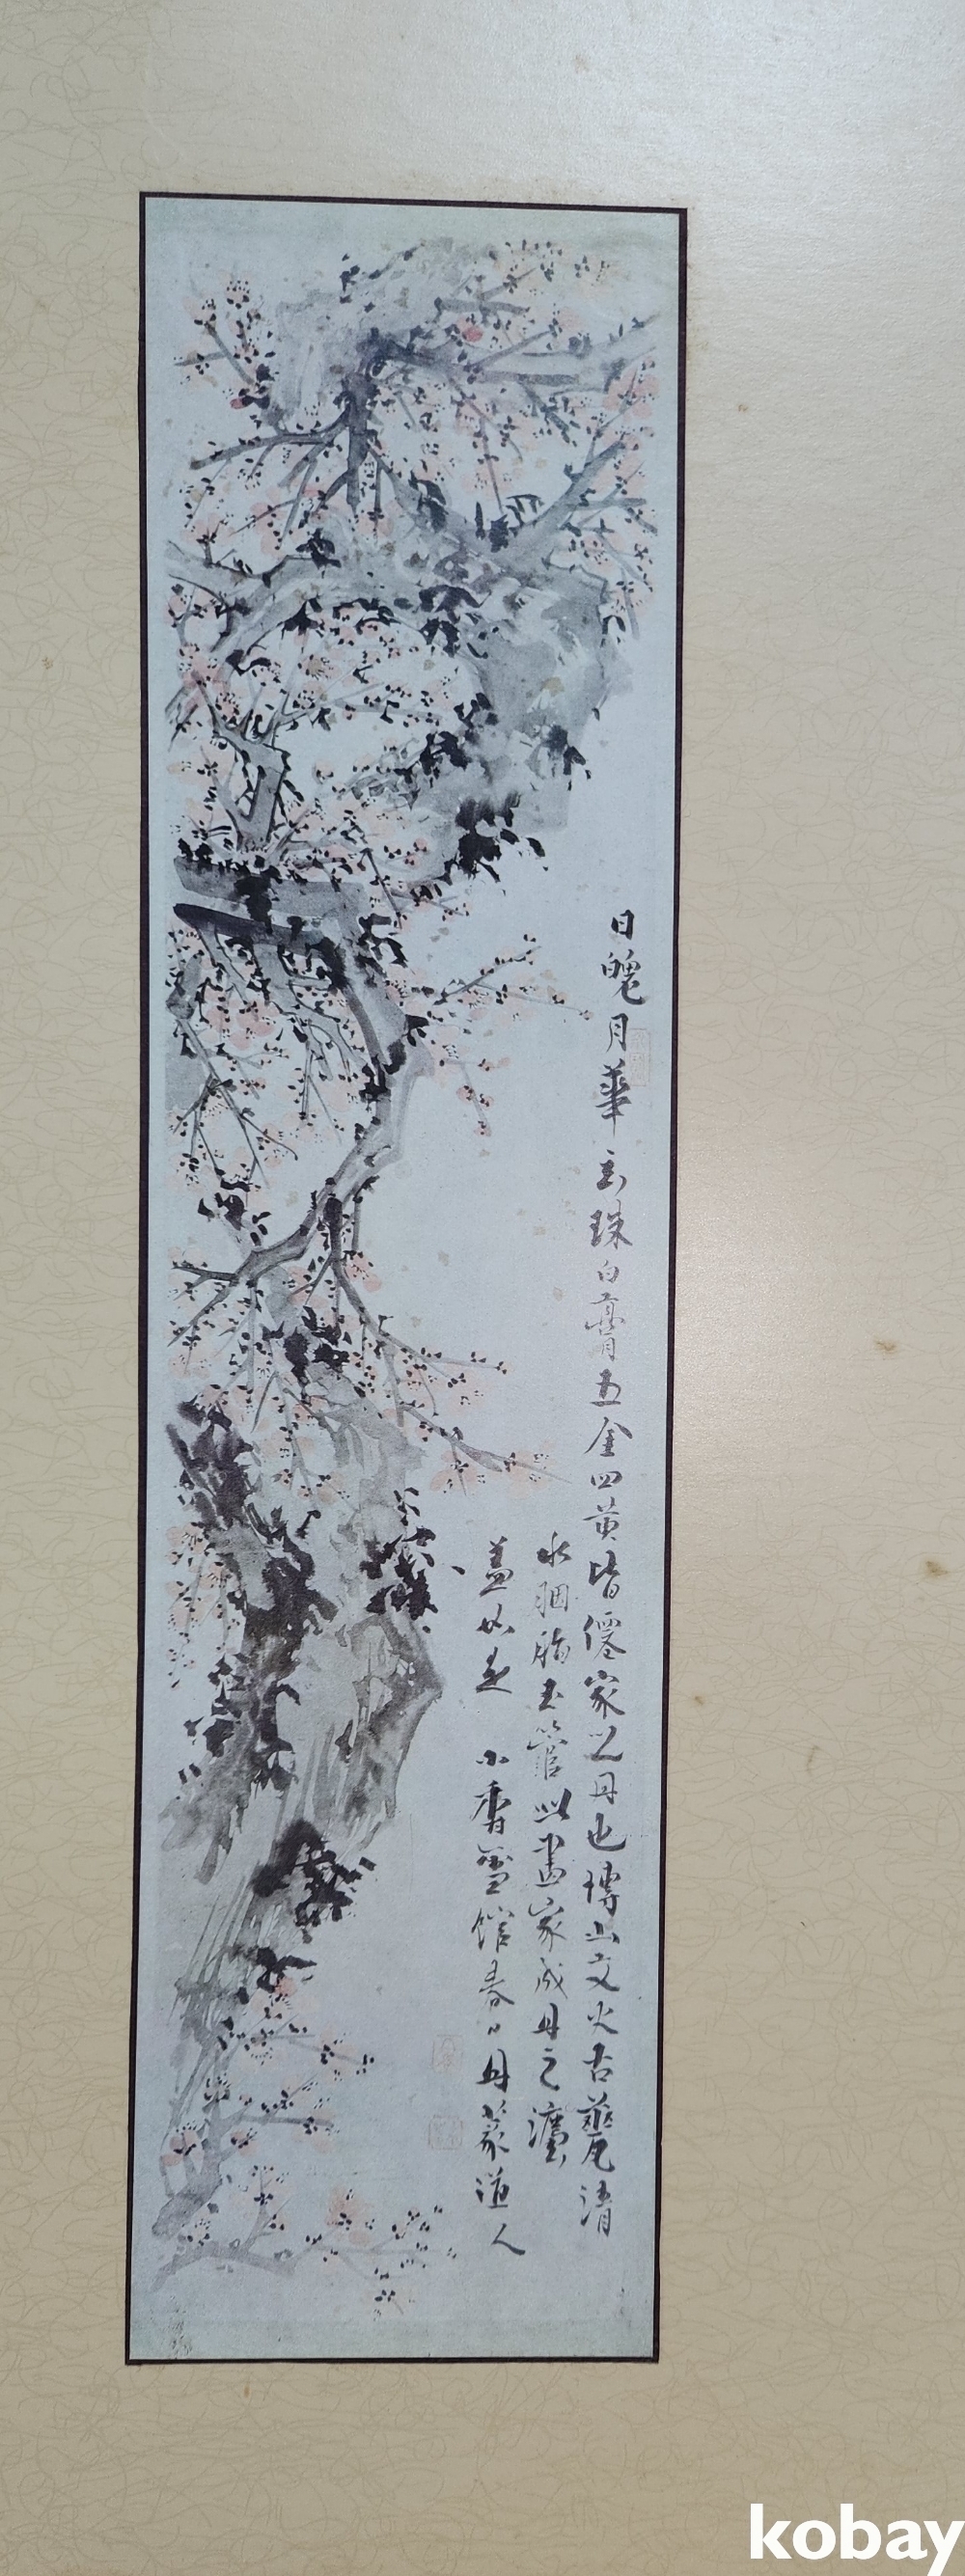 日魄月華玄珠白膏五金四黃皆僊家以丹也博山文火古甕清
水胭脂玉管此畫家成丹之
蓋如是 小香雪館春日丹篆道人
kobay